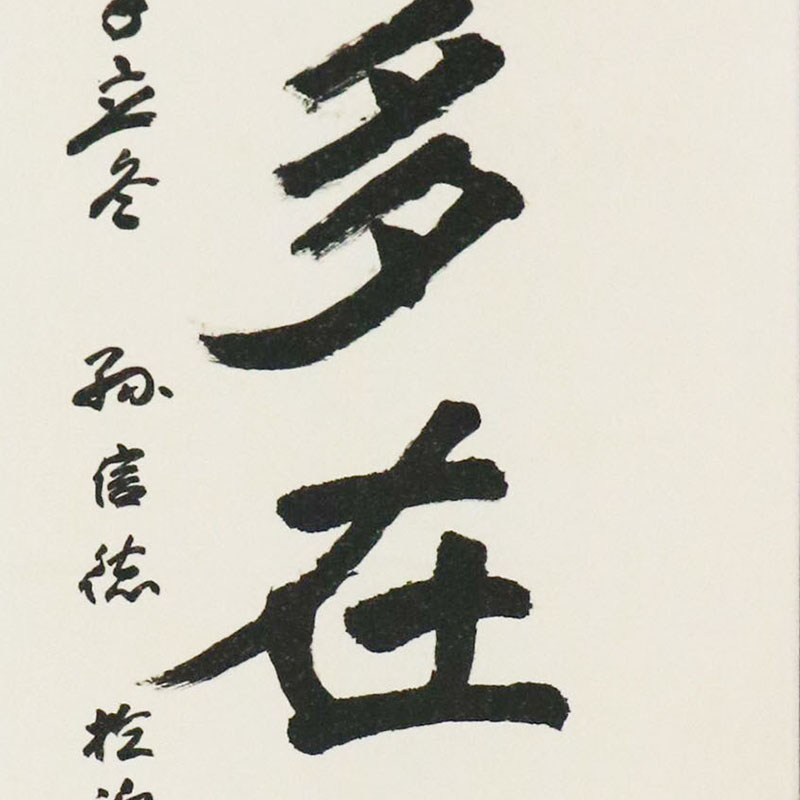 多在
立冬 孙信德 於